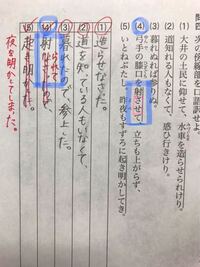 問四 次の例文を口語訳せよ。
(1) 大井の土民に仰せて、水車を造らせられけり。
(2) 道知れる人もなくて、惑ひ行きけり。
(3) 暮れぬれば参りぬ。
(4) 弓手の膝口を射させて、立ちも上がらず、
(5) いとねぶたし、昨夜もすずろに起き明かしてき。
(1) 造らせなさた。
(2) 道を知っている人もいなくて、
(3) 暮れたので、参上した。
(4) 射
(5) 起き明かした。
夜を明かしてしまった。